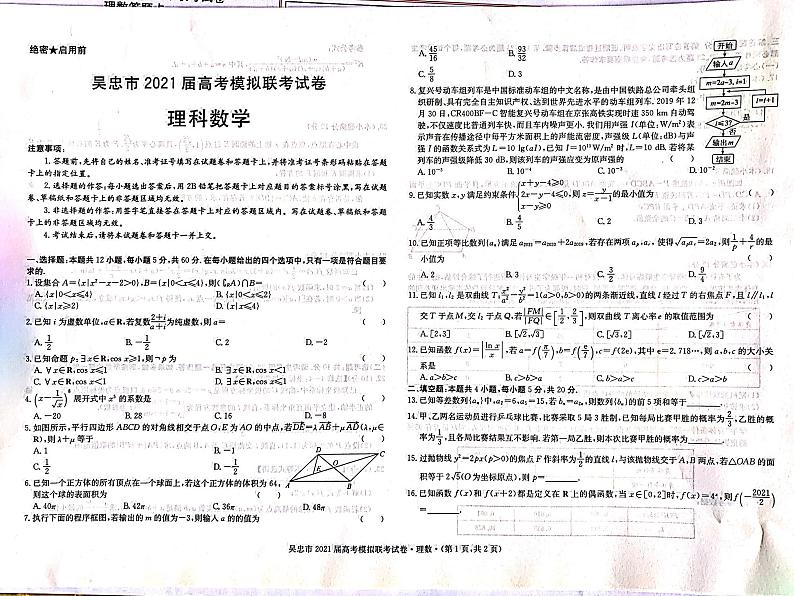 绝密★启用前
吴忠市2021届高考模拟联考试卷
理科数学
注意事项:
1.答题前,先将自己的姓名、准考证号填写在试题卷和答题卡上,并将准考证号条形码粘贴在答题
卡上的指定位置。
2.选择题的作答:每小题选出答案后,用2B铅笔把答题卡上对应题目的答案标号涂黑,写在试题
卷、草稿纸和答题卡上的非答题区域均无效。
3.非选择题的作答:用签字笔直接答在答题卡上对应的答题区域内。写在试题卷、草稿纸和答题
卡上的非答题区域均无效。
4.考试结束后,请将本试题卷和答题卡一并上交。
一、选择题:本大题共12小题,每小题5分,共60分.在每小题给出的四个选项中,只有一项是符合题目要
求的.
1.设集合A={x|x²-x-2>0},B={x|0<x≤4},则(∁RA)∩B= ( )
A.{x|0<x≤4} B.{x|0<x<2}
C.{x|0<x≤2} D.{x|2<x≤4}
2.已知i为虚数单位,a∈R,若复数(2+i)/(a+i)为纯虚数,则a= ( )
A.1/2 B.-1/2 C.2 D.-2
3.已知命题p:∃x∈R,cos x≥1,则¬p为 ( )
A.∀x∈R,cos x≥1 B.∃x∈R,cos x<1
C.∀x∈R,cos x<1 D.∃x∈R,cos x≤1
4.(x-1/√x)⁸展开式中x⁵的系数是 ( )
A.-20 B.28 C.16 D.-8
5.如图所示,平行四边形ABCD的对角线相交于点O,E为AO的中点,若DE=λAB+μAD(λ,μ∈
R),则λ+μ等于 ( )
A.1 B.-1
C.1/2 D.-1/2
D C E O A B
6.已知一个正方体的所有顶点在一个球面上,若这个正方体的体积为64,
则这个球的表面积为 ( )
A.40π B.42π C.36π D.48π
7.执行下面的程序框图,若输出的m的值为-3,则输入a的的值为 ( )
A.45/16 B.93/32
C.5/8 D.3
开始
输入a
m=2a-3, i=1
m=2m-3 i=i+1
i=3?
是 否
输出m
结束
8.复兴号动车组列车是中国标准动车组的中文名称,是由中国铁路总公司牵头组
织研制、具有完全自主知识产权、达到世界先进水平的动车组列车.2019年12
月30日,CR400BF-C智能复兴号动车组在京张高铁实现时速350km自动驾
驶,不仅速度比普通列车快,而且车内噪声更小.我们用声强I(单位:W/m²)表
示声音在传途径中每平方米面积上的声能流密度,声强级L(单位:dB)与声
强I的函数关系式为L=10lg(aI),已知I=10¹³W/m²时,L=10dB.若将某
列车的声强级降低30dB,则该列车的声强应变为原声强的 ( )
A.10⁻⁵ B.10⁻⁴ C.10⁻³ D.10⁻²
9.已知实数x,y满足约束条件{x+y-4≥0 2x-y-4≤0 x-y≥0,则z=y/(x-1)的最小值为 ( )
A.4/3 B.4/5 C.2 D.3
10.已知正项等比数列{aₙ}满足a₂₀₂₁=a₂₀₂₀+2a₂₀₁₉,若存在两项aₚ,aᵣ,使得√(aₚaᵣ)=2a₂,则1/p+4/r的最
小值为 ( )
A.2 B.3 C.3/2 D.9/4
11.已知l₁,l₂是双曲线T:x²/a²-y²/b²=1(a>0,b>0)的两条渐近线,直线l经过T的右焦点F,且l∥l₁,l
交T于点M,交l₂于点Q,若|FM|/|FQ|∈[1/2,2/3],则双曲线T离心率e的取值范围为 ( )
A.[2,3] B.[√2,√3] C.[√3,2] D.[√3,3]
12.已知函数f(x)=|ln x/x|,若a=f(e/2),b=f(π/2),c=f(2e),其中e=2.718…,则a,b,c的大小关
系是 ( )
A.a>b>c B.c>b>a C.b>a>c D.c>a>b
二、填空题:本题共4小题,每小题5分,共20分.
13.已知等差数列{aₙ}中,a₂=6,a₅=15,若bₙ=a₂ₙ,则数列{bₙ}的前5项和等于
14.甲、乙两名运动员进行乒乓球比赛,比赛采取5局3胜制,已知每局比赛甲胜的概率为2/3,乙胜的概
率为1/3,且各局比赛结果互不影响.若第一局乙胜,则本次比赛甲胜的概率为
15.过抛物线y²=2px(p>0)的焦点F作斜率为1/2的直线l,与该抛物线交于A,B两点,若△OAB的面
积等于2√5(O为坐标原点),则p=
16.已知函数f(x)和f(x+2)都是定义在R上的偶函数,当x∈[0,2]时,f(x)=4ˣ,则f(-2021/2)
=
吴忠市2021届高考模拟联考试卷·理数·(第1页,共2页)